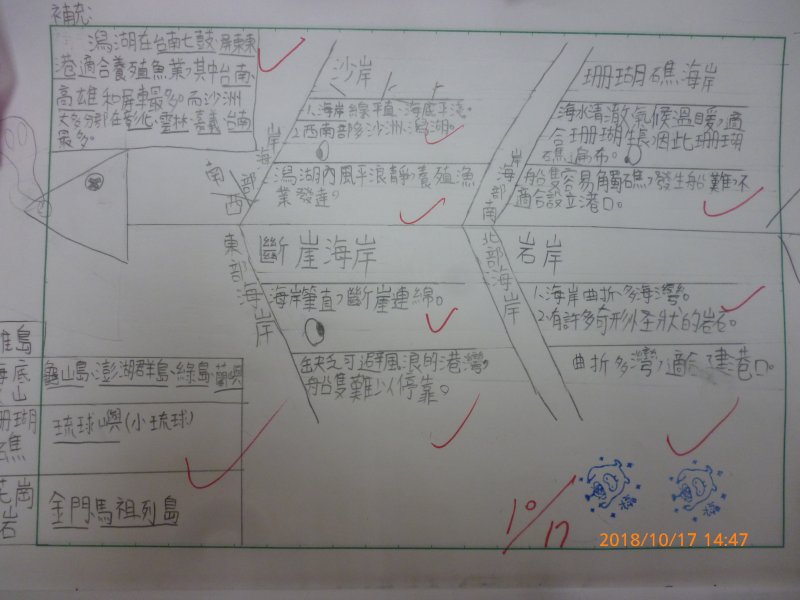 補充:
潟湖在台南七鼓、屏東東
港適合養殖魚業,其中台南、
高雄和屏東最多。而沙洲
大多分部在彰化、雲林、嘉義、台南
最多。
沙岸
1.海岸線平直、海底平淺。
2.西南部多沙洲、潟湖。
西南部海岸
潟湖內風平浪靜,養殖漁
業發達。
珊瑚礁海岸
海水清澈,氣候溫暖,適
合珊瑚生長,因此珊瑚
礁遍布。
南部海岸
船隻容易觸礁,發生船難,不
適合設立港口。
東部海岸
斷崖海岸
海岸筆直,斷崖連綿。
缺乏可避風浪的港灣,
船隻難以停靠。
北部海岸
岩岸
1.海岸曲折、多海灣。
2.有許多奇形怪狀的岩石。
曲折多灣,適合建港口。
龜山島、澎湖群島、綠島、蘭嶼
琉球嶼(小琉球)
金門、馬祖列島
離島
海底
火山
珊瑚
礁
花崗
岩
10/17
2018/10/17 14:47